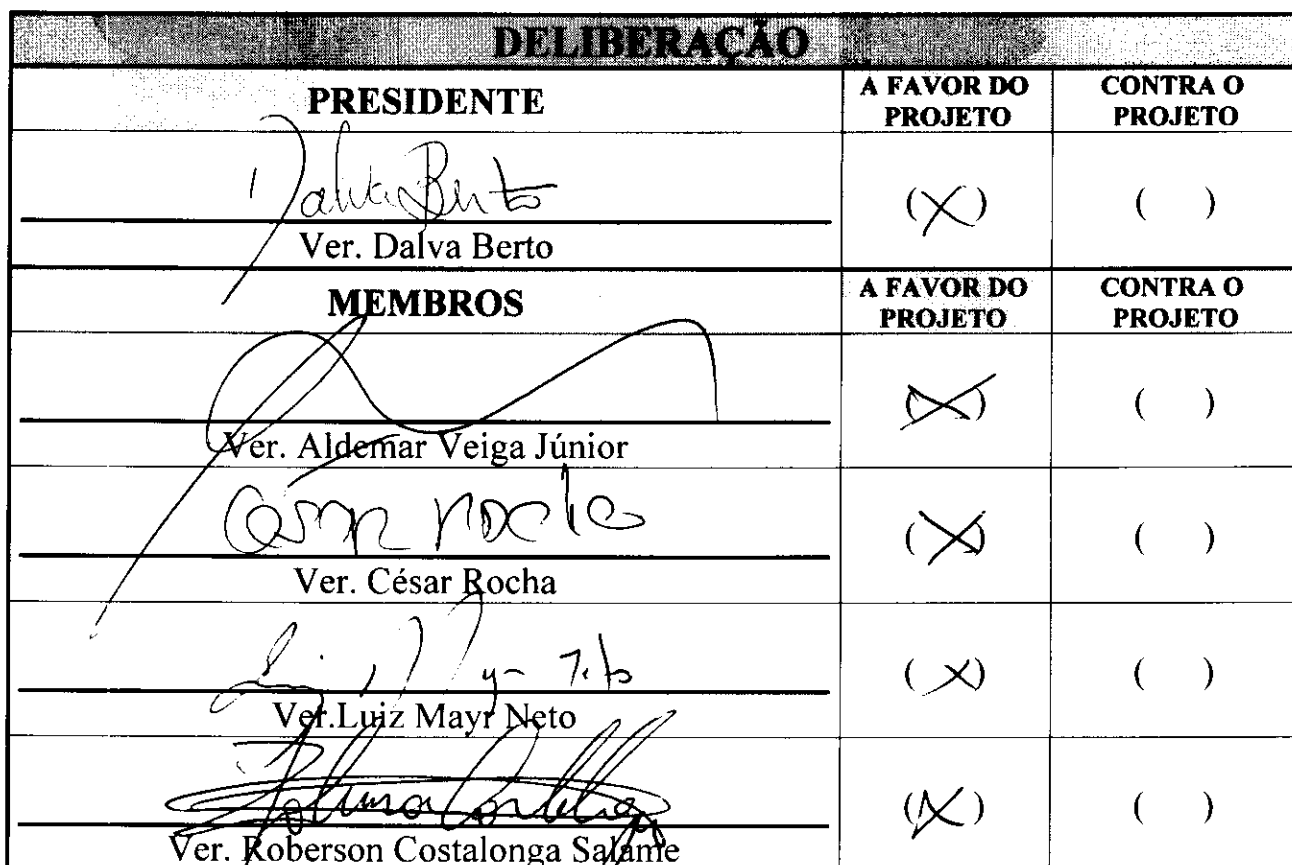 DELIBERAÇÃO
PRESIDENTE
A FAVOR DO
PROJETO
CONTRA O
PROJETO
Dalva Berto
(X)
( )
Ver. Dalva Berto
MEMBROS
A FAVOR DO
PROJETO
CONTRA O
PROJETO
(X)
( )
Ver. Aldemar Veiga Júnior
César Rocha
(X)
( )
Ver. César Rocha
(X)
( )
Ver.Luiz Mayr Neto
(X)
( )
Ver. Roberson Costalonga Salame